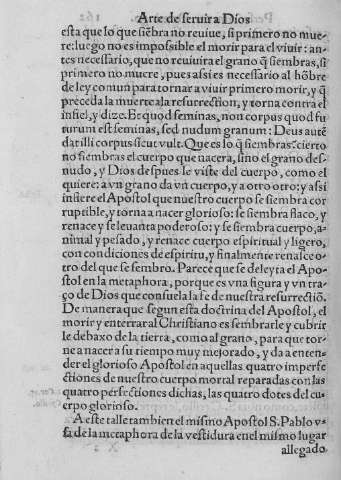 Arte de seruir a Dios
esta que lo que siẽbra no reuiue, si primero no mue
re: luego no es impossible el morir para el viuir: an-
tes necessario, que no reuiuira el grano q̃ siembras, si
primero no muere, pues assi es necessario al hõbre
de ley comun para tornar a viuir primero morir, y q̃
preceda la muerte a la resurrection, y torna contra el
infiel, y dize. Et quod seminas, non corpus quod fu
turum est seminas, sed nudum granum: Deus autẽ
dat illi corpus sicut vult. Que es lo q̃ siembras: cierto
no siembras el cuerpo que nacera, sino el grano des-
nudo, y Dios despues le viste del cuerpo, como el
quiere: a vn grano da vn cuerpo, y a otro otro: y assi
infiere el Apostol que nuestro cuerpo se siembra cor
ruptible, y torna a nacer glorioso: se siembra flaco, y
renace y se leuanta poderoso: y se siembra cuerpo, a-
nimal y pesado, y renace cuerpo espiritual y ligero,
con condiciones de espiritu, y finalmente renasce o-
tro del que se sembro. Parece que se deleyta el Apo-
stol en la metaphora, porque es vna figura y vn tra-
ço de Dios que consuela la fe de nuestra resurrectiõ.
De manera que segun esta doctrina del Apostol, el
morir y enterrar al Christiano es sembrarle y cubrir
le debaxo de la tierra, como al grano, para que tor-
ne a nacer a su tiempo muy mejorado, y da a enten-
der el glorioso Apostol en aquellas quatro imperfe
ctiones de nuestro cuerpo mortal reparadas con las
quatro perfectiones dichas, las quatro dotes del cu-
erpo glorioso.
A este talle tambien el mismo Apostol S. Pablo v-
sa de la metaphora de la vestidura en el mismo lugar
allegado